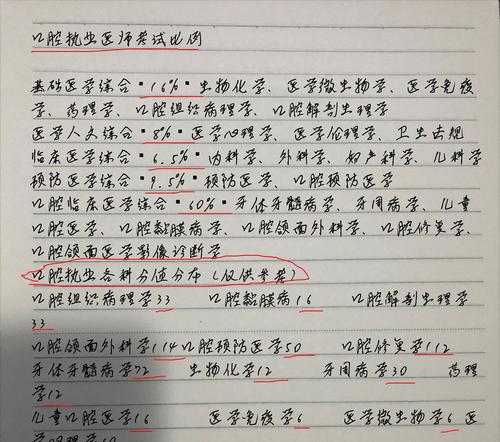 口腔执业医师考试比例
基础医学综合"16%"生物化学、医学微生物学、医学免疫
学、药理学、口腔组织病理学、口腔解剖生理学
医学人文综合"8%"医学心理学、医学伦理学、卫生法规
临床医学综合"6.5%"内科学、外科学、妇产科学、儿科学
预防医学综合"9.5%"预防医学、口腔预防医学
口腔临床医学综合"60%"牙体牙髓病学、牙周病学、儿童
口腔医学、口腔黏膜病学、口腔颌面外科学、口腔修复学、
口腔颌面医学影像诊断学
口腔执业各科分值分布(仅供参考)
口腔组织病理学33 口腔黏膜病16 口腔解剖生理学
33
口腔颌面外科学114口腔预防医学50 口腔修复学112
牙体牙髓病学72 生物化学12 牙周病学30 药理
学12
儿童口腔医学16 医学免疫学6 医学微生物学6 医